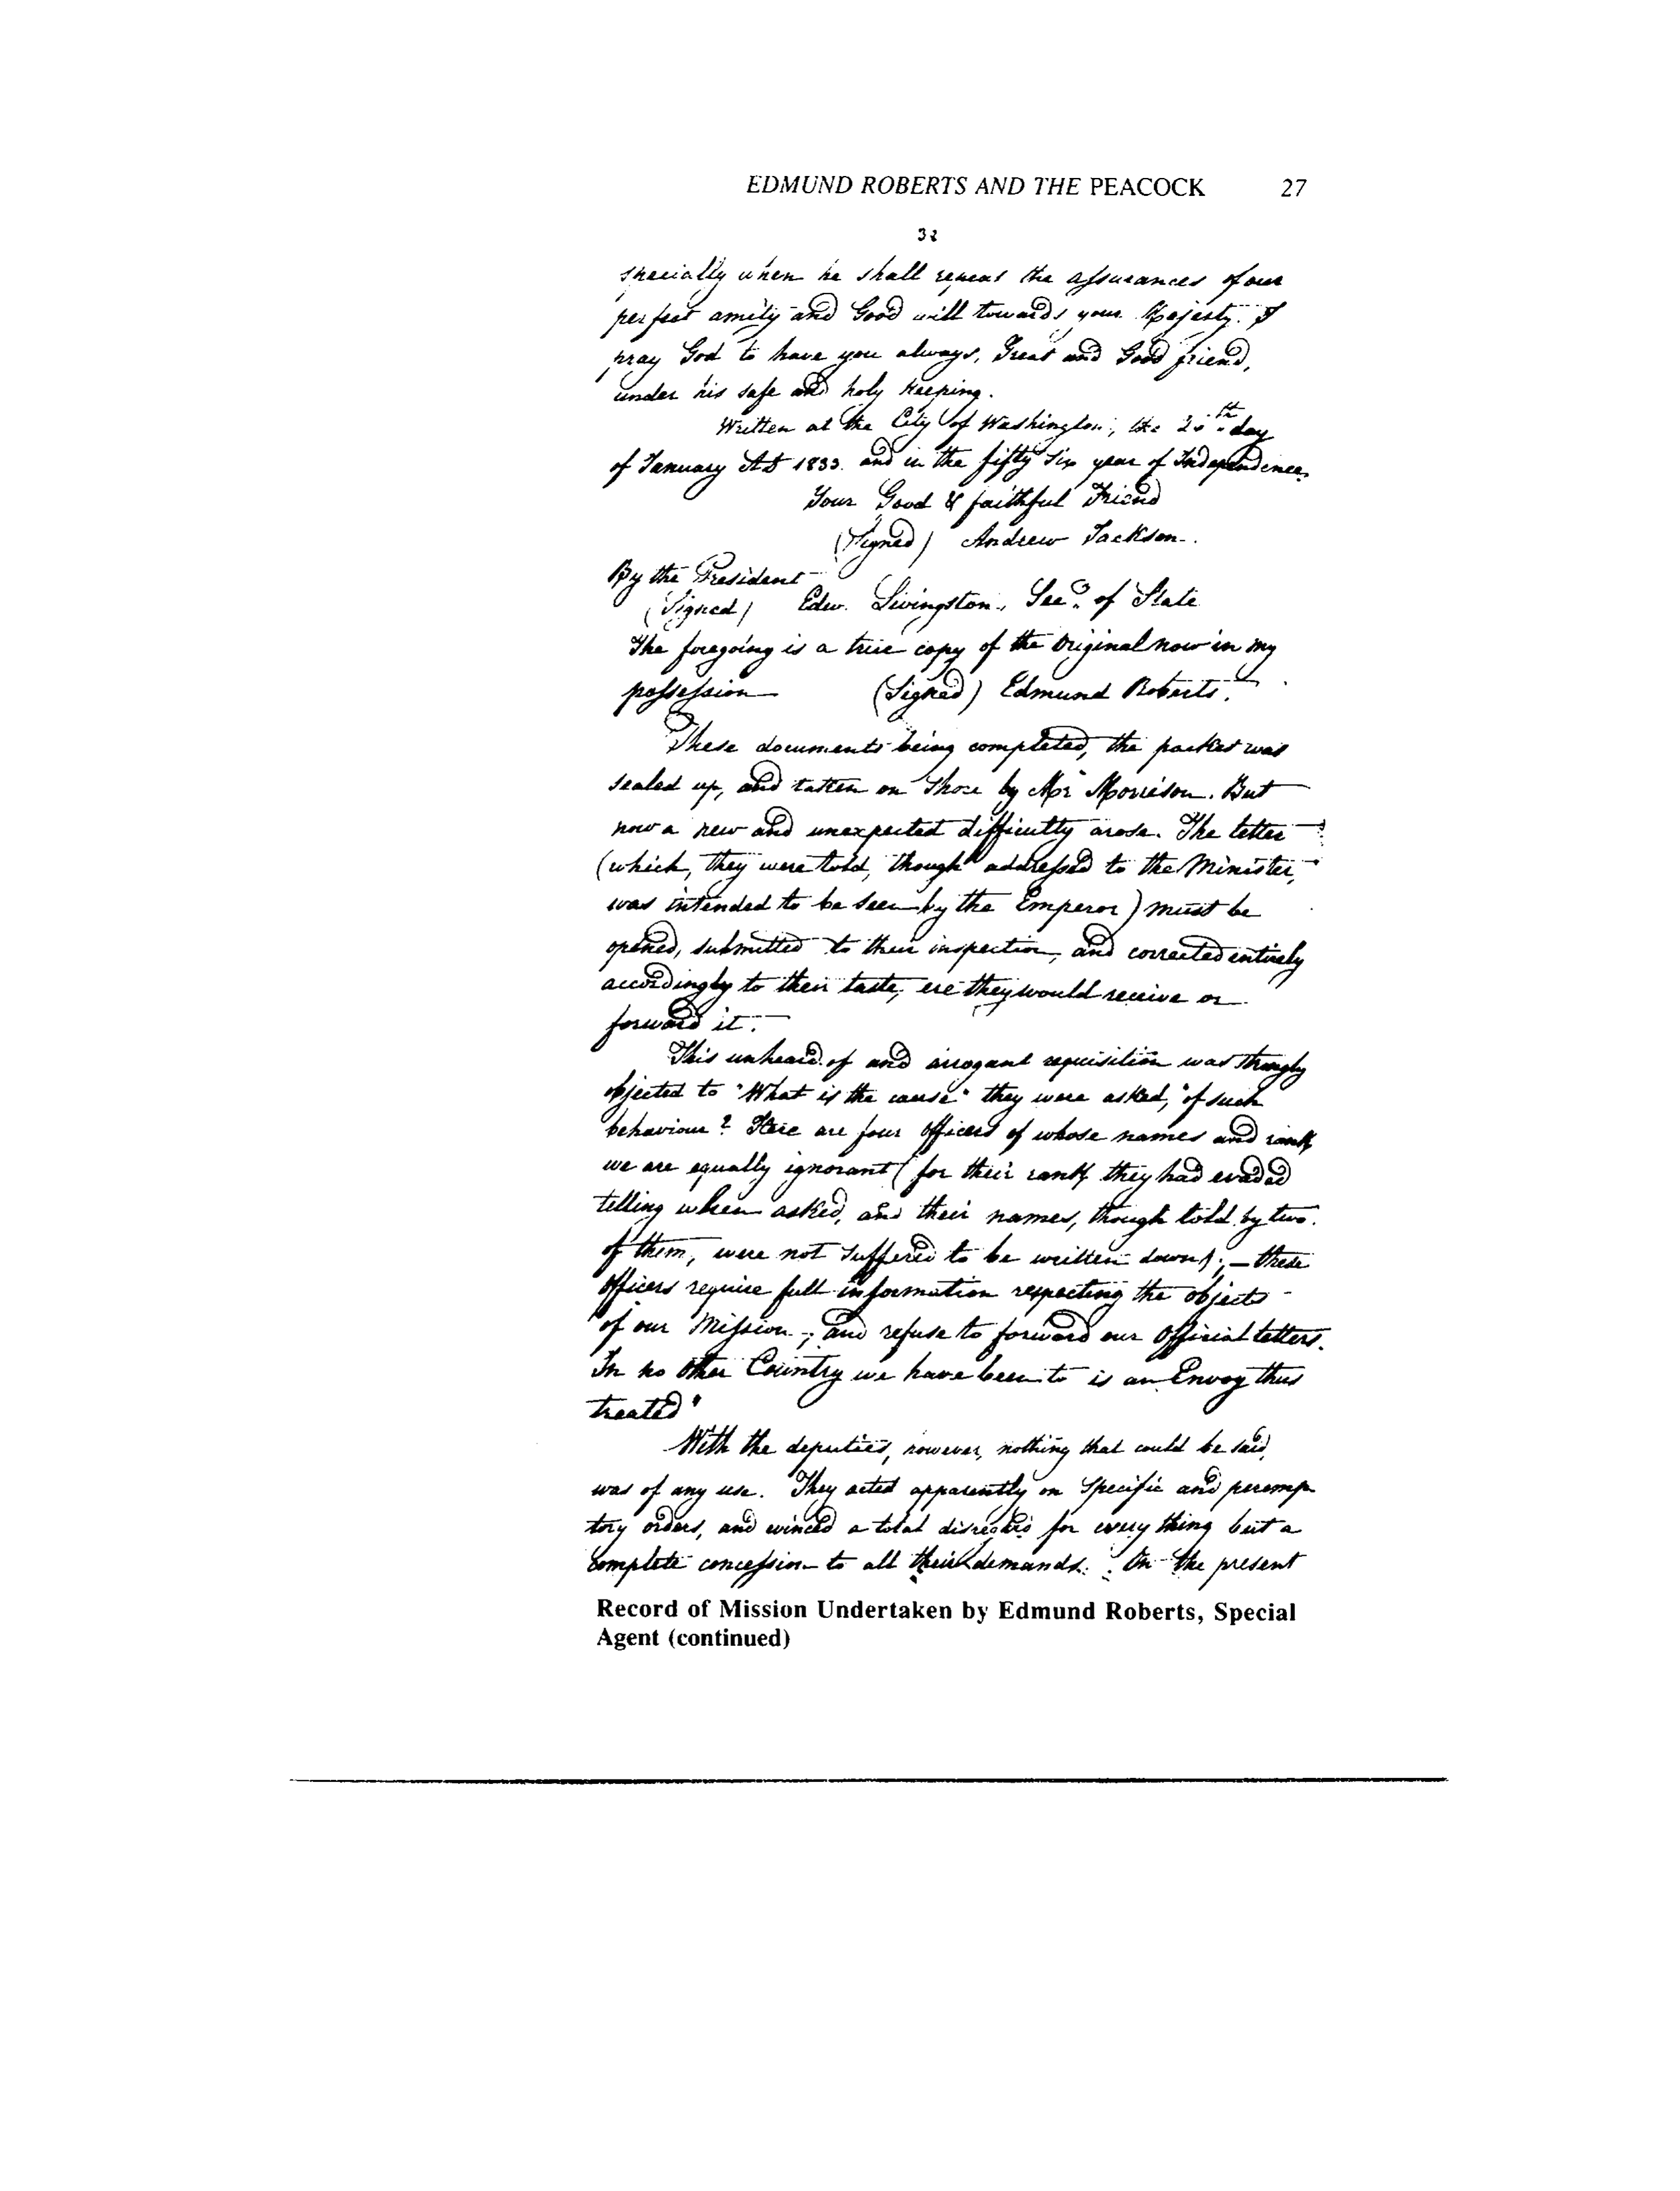 EDMUND ROBERTS AND THE PEACOCK 27
32
specially when he shall repeat the assurances of our
perfect amity and Good will towards your Majesty. I
pray God to have you always, Great and Good friend,
under his safe and holy Keeping.
Written at the City of Washington, the day
of January AD 1833. and in the fifty Six year of Independence.
Your Good & faithful Friend
(Signed) Andrew Jackson.
By the President
(Signed) Edw. Livingston, Secy. of State
The foregoing is a true copy of the Original now in my
possession (Signed) Edmund Roberts.
These documents being completed, the packet was
sealed up, and taken on Shore by Mr Morrison. But
now a new and unexpected difficulty arose. The letter
(which, they were told, though addressed to the Minister,
was intended to be seen by the Emperor) must be
opened, submitted to their inspection, and corrected entirely
accordingly to their taste, ere they would receive or
forward it.
This unheard of and arrogant requisition was strongly
objected to "What is the cause" they were asked, "of such
behaviour? Here are four Officers of whose names and rank
we are equally ignorant (for their rank they had evaded
telling when asked, and their names, though told by two
of them, were not suffered to be written down); — these
Officers require full information respecting the objects
of our Mission; and refuse to forward our Official letters.
In no other Country we have been to is an Envoy thus
treated"
With the deputies, however, nothing that could be said,
was of any use. They acted apparently on Specific and peremp
tory orders, and evinced a total disregard for every thing but a
complete concession to all their demands. On the present
Record of Mission Undertaken by Edmund Roberts, Special
Agent (continued)